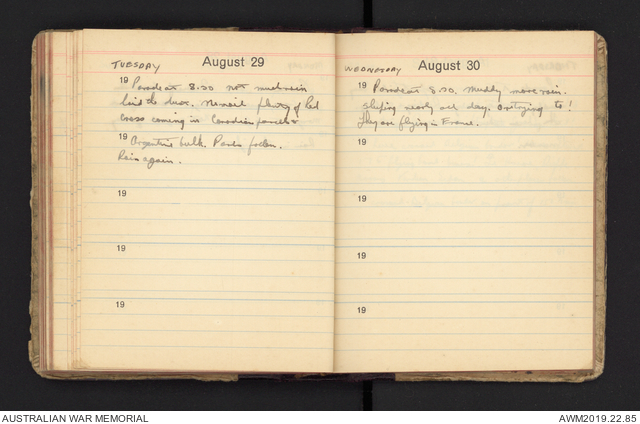 TUESDAY August 29
19 Parade at 8.30 not much rain
laid the dust. plenty of Red
Cross coming in Canadian parcels &
19 Argentine bulk. Paris fallen.
Rain again.
19
19
19
WEDNESDAY August 30
19 Parade at 8.30. Muddy more rain.
nearly all day. trying to!
They are flying in France.
19
19
19
19
AUSTRALIAN WAR MEMORIAL
AWM2019.22.85